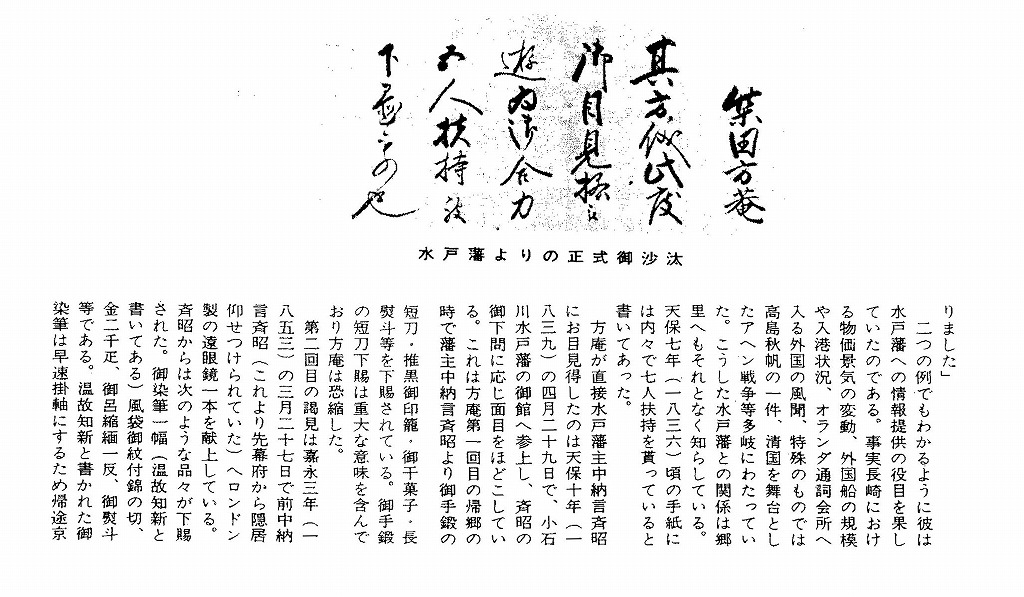 柴田方菴
其方儀此度
御目見格ニ
遊為御合力
五人扶持被
下置もの也
水戸藩よりの正式御沙汰
りました」
二つの例でもわかるように彼は
水戸藩への情報提供の役目を果し
ていたのである。事実長崎におけ
る物価景気の変動、外国船の規模
や入港状況、オランダ通詞会所へ
入る外国の風聞、特殊のものでは
高島秋帆の一件、清国を舞台とし
たアヘン戦争等多岐にわたってい
た。こうした水戸藩との関係は郷
里へもそれとなく知らしている。
天保七年(一八三六)頃の手紙に
は内々で七人扶持を貰っていると
書いてあった。
方菴が直接水戸藩主中納言斉昭
にお目見得したのは天保十年(一
八三九)の四月二十九日で、小石
川水戸藩の御館へ参上し、斉昭の
御下問に応じ面目をほどこしてい
る。これは方菴第一回目の帰郷の
時で藩主中納言斉昭より御手鍛の
短刀・推黒御印籠・御干菓子・長
熨斗等を下賜されている。御手鍛
の短刀下賜は重大な意味を含んで
おり方菴は恐縮した。
第二回目の謁見は嘉永三年(一
八五三)の三月二十七日で前中納
言斉昭(これより先幕府から隠居
仰せつけられていた)へロンドン
製の遠眼鏡一本を献上している。
斉昭からは次のような品々が下賜
された。御染筆一幅(温故知新と
書いてある)風袋御紋付錦の切、
金二千疋、御呂縮緬一反、御熨斗
等である。温故知新と書かれた御
染筆は早速掛軸にするため帰途京